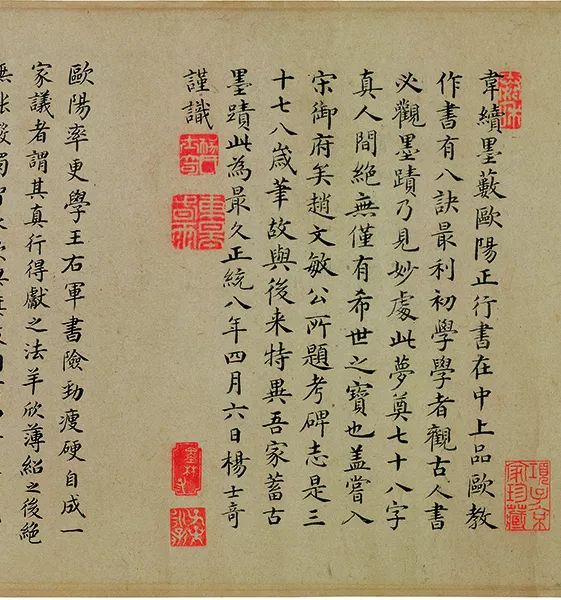 韋續墨藪歐陽正行書在中上品歐教
作書有八訣最利初學學者觀古人書
必觀墨蹟乃見妙處此夢奠七十八字
真人間絕無僅有希世之寶也盖嘗入
宋御府矣趙文敏公所題考碑志是三
十七八歲筆故與後来特異吾家蓄古
墨蹟此為最久正統八年四月六日楊士奇
謹識
歐陽率更學王右軍書險勁瘦硬自成一
家議者謂其真行得獻之法羊欣薄紹之後絕
項子京家珍藏